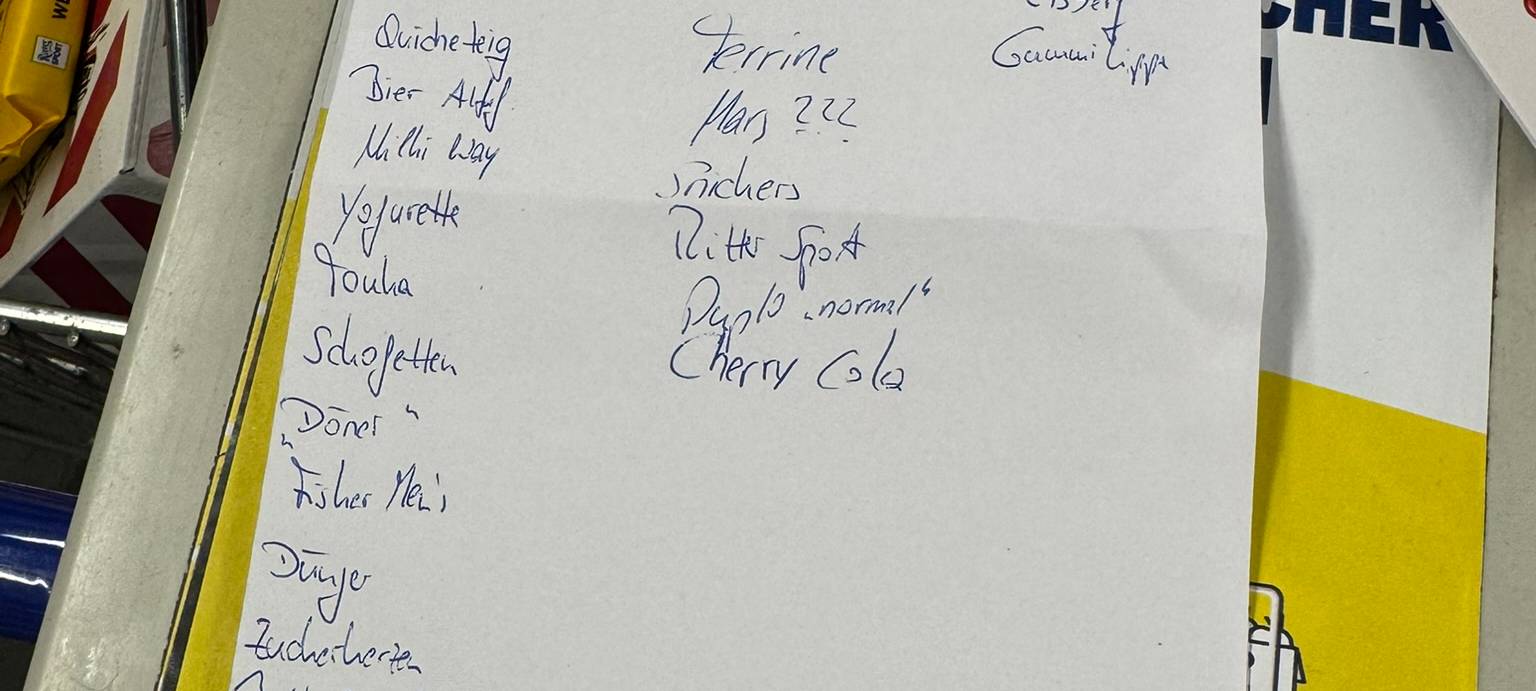 Quicheteig
Bier
Milki Way
Yogurette
Schogetten
„Döner“
Fisher Men's
Dünger
Zuckerherzen
Terrine
Mars ???
Snickers
Ritter Sport
Duplo „normal“
Cherry Cola
Gummi
CHER